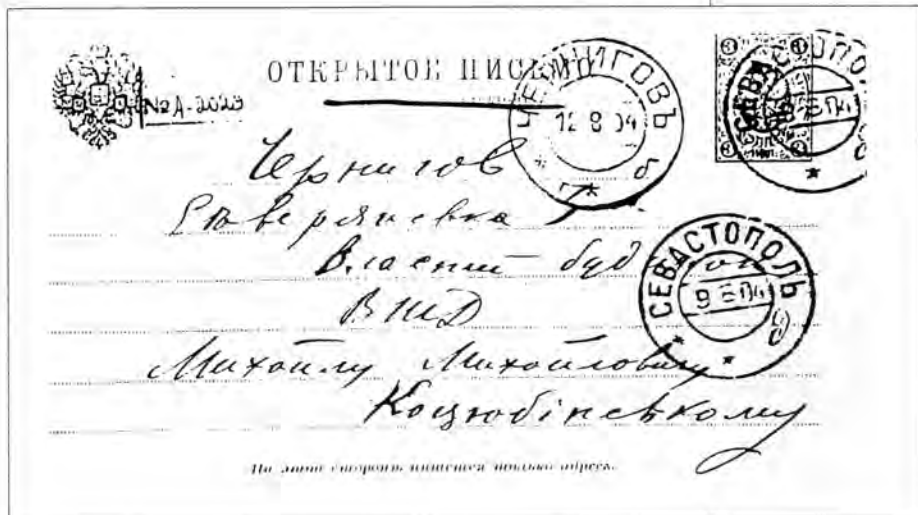 ОТКРЫТОЕ ПИСЬМО
№ А-2029
ЧЕРНИГОВЪ
12 8 04
б
СЕВАСТОПОЛЬ
3 3
Чернигов
Сѣверянська
Власний буд
ВШД
СЕВАСТОПОЛЬ
9 8 04
Михайлу Михайловичу
Коцюбінському
На этой сторонѣ пишется только адресъ.